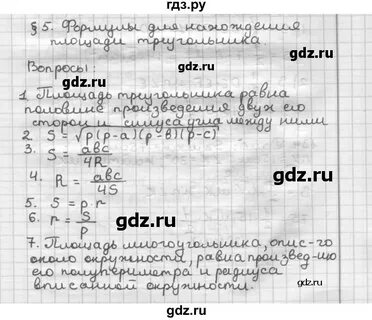 гдз.ру
§5. Формулы для нахождения
площади треугольника.
Вопросы:
1. Площадь треугольника равна
половине произведения двух его
сторон и синуса угла между ними
2. S = √p(p-a)(p-b)(p-c)
3. S = abc/4R
4. R = abc/4S
5. S = p·r
6. r = S/p
7. Площадь многоугольника, опис-го
около окружности, равна произвед-ию
его полупериметра и радиуса
вписанной окружности.
gdz.ru
gdz.ru
gdz.ru
gdz.ru